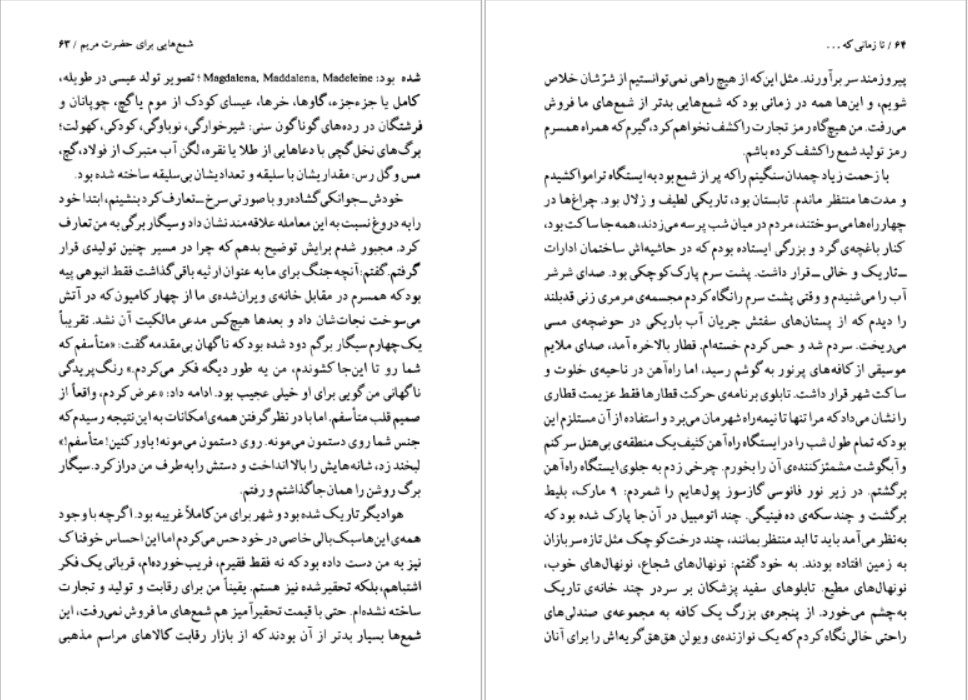 شمع‌هایی برای حضرت مریم / ۶۳
شده بود: Magdalena, Maddalena, Madeleine؛ تصویر تولد عیسی در طویله،
کامل یا جزءجزء، گاوها، خرها، عیسای کودک از موم یا گچ، چوپانان و
فرشتگان در رده‌های گوناگون سنی: شیرخوارگی، نوباوگی، کودکی، کهولت؛
برگ‌های نخل گچی با دعاهایی از طلا یا نقره، لگن آب متبرک از فولاد، گچ،
مس و گل رس: مقداریشان با سلیقه و تعدادیشان بی‌سلیقه ساخته شده بود.
خودش ـ جوانکی گشاده‌رو با صورتی سرخ ـ تعارف کرد بنشینم، ابتدا خود
را به دروغ نسبت به این معامله علاقه‌مند نشان داد و سیگار برگی به من تعارف
کرد. مجبور شدم برایش توضیح بدهم که چرا در مسیر چنین تولیدی قرار
گرفتم. گفتم: آنچه جنگ برای ما به عنوان ارثیه باقی گذاشت فقط انبوهی پیه
بود که همسرم در مقابل خانه‌ی ویران‌شده‌ی ما از چهار کامیون که در آتش
می‌سوخت نجات‌شان داد و بعدها هیچ‌کس مدعی مالکیت آن نشد. تقریباً
یک‌چهارم سیگار برگم دود شده بود که ناگهان بی‌مقدمه گفت: «متأسفم که
شما رو تا این‌جا کشوندم، من یه طور دیگه فکر می‌کردم.» رنگ‌پریدگی
ناگهانی من گویی برای او خیلی عجیب بود. ادامه داد: «عرض کردم، واقعاً از
صمیم قلب متأسفم. اما با در نظر گرفتن همه‌ی امکانات به این نتیجه رسیدم که
جنس شما روی دستمون می‌مونه. روی دستمون می‌مونه! باور کنین! متأسفم!»
لبخند زد، شانه‌هایش را بالا انداخت و دستش را به‌طرف من دراز کرد. سیگار
برگ روشن را همان جا گذاشتم و رفتم.
هوا دیگر تاریک شده بود و شهر برای من کاملاً غریبه بود. اگرچه با وجود
همه‌ی این‌ها سبک‌بالی خاصی در خود حس می‌کردم اما این احساس خوفناک
نیز به من دست داده بود که نه فقط فقیرم، فریب‌خورده‌ام، قربانی یک فکر
اشتباهم، بلکه تحقیر شده نیز هستم. یقیناً من برای رقابت و تولید و تجارت
ساخته نشده‌ام. حتی با قیمت تحقیرآمیز هم شمع‌های ما فروش نمی‌رفت، این
شمع‌ها بسیار بدتر از آن بودند که از بازار رقابت کالاهای مراسم مذهبی
۶۴ / تا زمانی که ...
پیروزمند سر برآورند. مثل این‌که از هیچ راهی نمی‌توانستیم از شرّشان خلاص
شویم، و این‌ها همه در زمانی بود که شمع‌هایی بدتر از شمع‌های ما فروش
می‌رفت. من هیچ‌گاه رمز تجارت را کشف نخواهم کرد، گیرم که همراه همسرم
رمز تولید شمع را کشف کرده باشم.
با زحمت زیاد چمدان سنگینم را که پر از شمع بود به ایستگاه تراموا کشیدم
و مدت‌ها منتظر ماندم. تابستان بود، تاریکی لطیف و زلال بود. چراغ‌ها در
چهارراه‌ها می‌سوختند، مردم در میان شب پرسه می‌زدند، همه‌جا ساکت بود،
کنار باغچه‌ی گرد و بزرگی ایستاده بودم که در حاشیه‌اش ساختمان ادارات
ـ تاریک و خالی ـ قرار داشت. پشت سرم پارک کوچکی بود. صدای شرشر
آب را می‌شنیدم و وقتی پشت سرم را نگاه کردم مجسمه‌ی مرمری زنی قدبلند
را دیدم که از پستان‌های سفتش جریان آب باریکی در حوضچه‌ی مسی
می‌ریخت. سردم شد و حس کردم خسته‌ام. قطار بالاخره آمد، صدای ملایم
موسیقی از کافه‌های پرنور به گوشم رسید، اما راه‌آهن در ناحیه‌ی خلوت و
ساکت شهر قرار داشت. تابلوی برنامه‌ی حرکت قطارها فقط عزیمت قطاری
را نشان می‌داد که مرا تنها تا نیمه‌راه شهرمان می‌برد و استفاده از آن مستلزم این
بود که تمام طول شب را در ایستگاه راه‌آهن کثیف یک منطقه‌ی بی‌هتل سر کنم
و آبگوشت مشمئزکننده‌ی آن را بخورم. چرخی زدم به جلوی ایستگاه راه‌آهن
برگشتم. در زیر نور فانوسی گازسوز پول‌هایم را شمردم: ۹ مارک، بلیط
برگشت و چند سکه‌ی ده فینیگی. چند اتومبیل در آن‌جا پارک شده بود که
به‌نظر می‌آمد باید تا ابد منتظر بمانند، چند درخت کوچک مثل تازه‌سربازان
به زمین افتاده بودند. به خود گفتم: نونهال‌های شجاع، نونهال‌های خوب،
نونهال‌های مطیع. تابلوهای سفید پزشکان بر سردر چند خانه‌ی تاریک
به‌چشم می‌خورد. از پنجره‌ی بزرگ یک کافه به مجموعه‌ی صندلی‌های
راحتی خالی نگاه کردم که یک نوازنده‌ی ویولن هق‌هق گریه‌اش را برای آنان